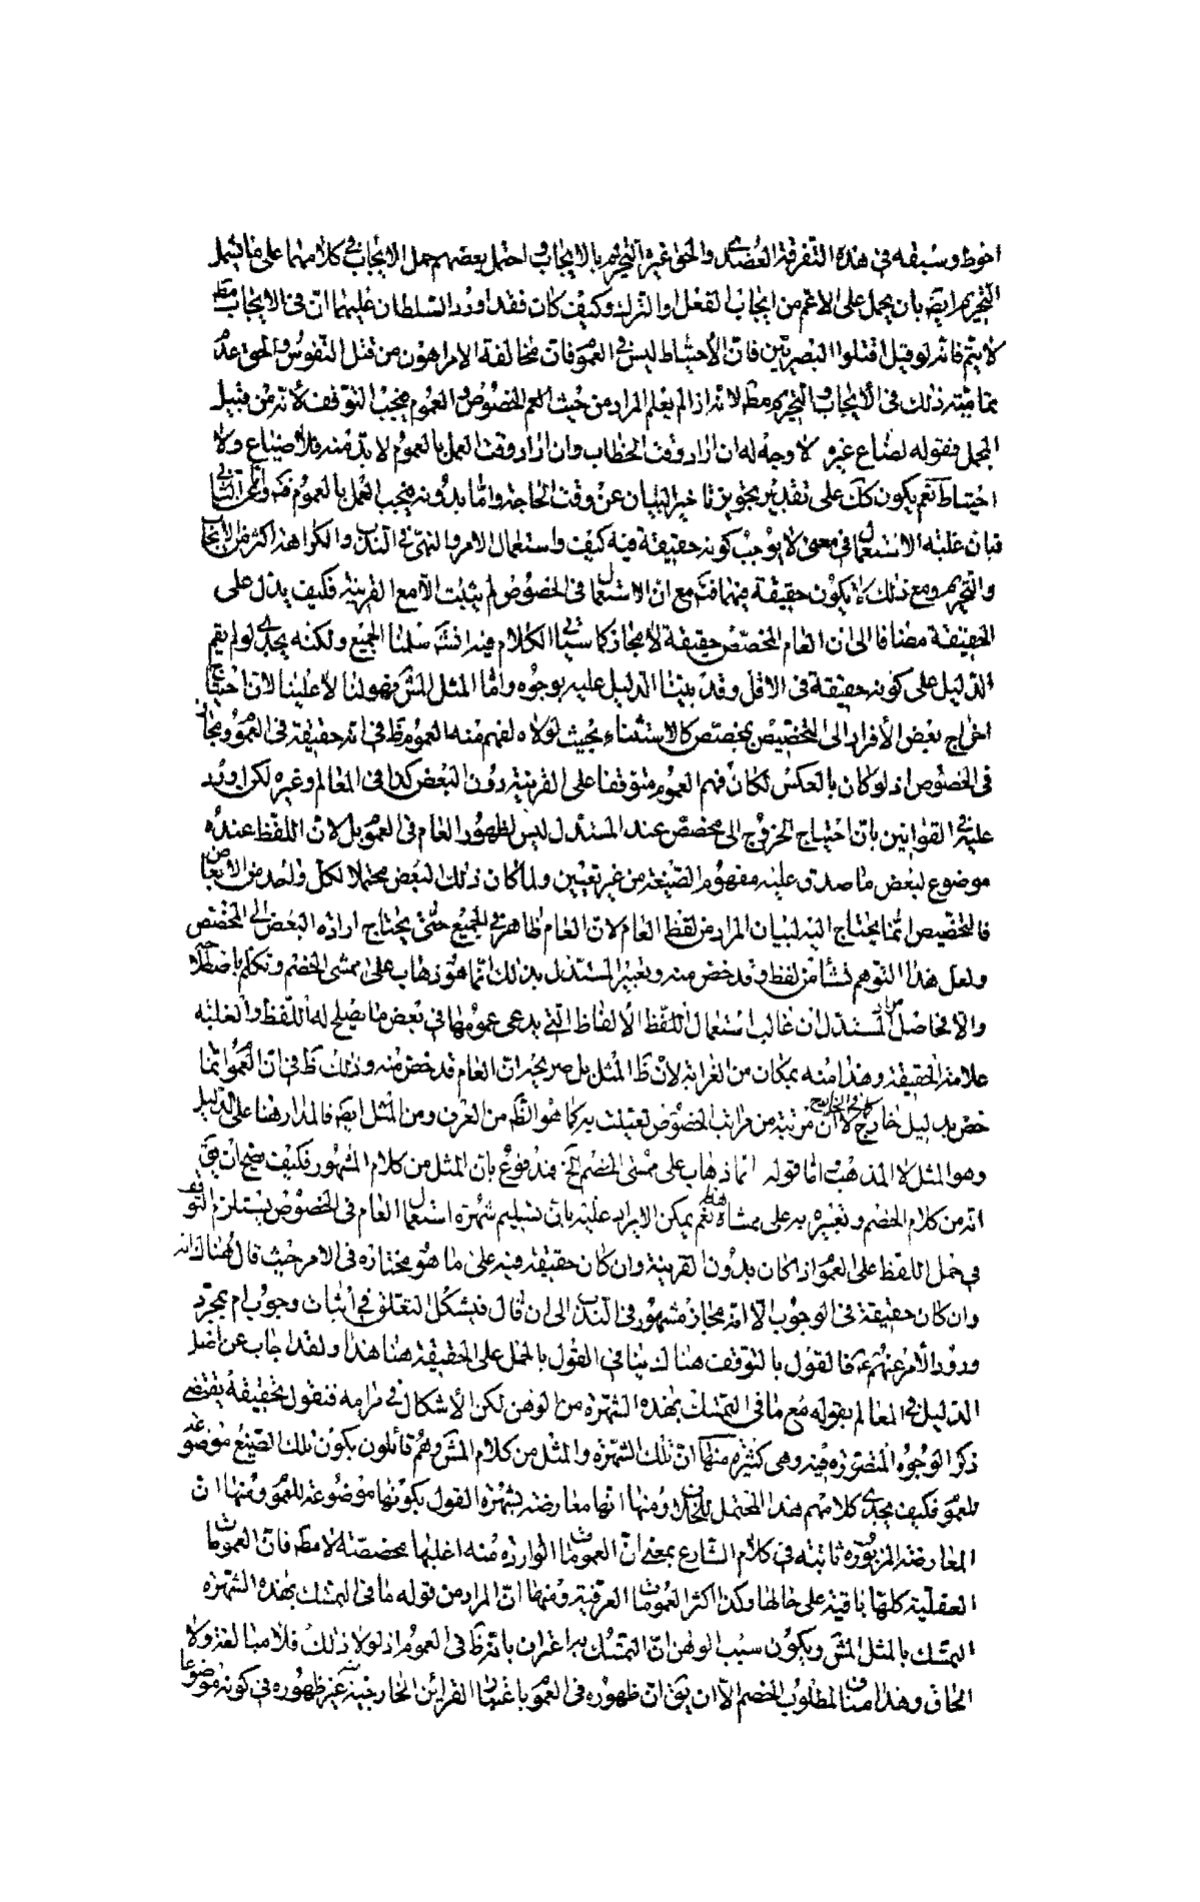 احوط وسبقه في هذه التفرقة العضدي والحق غيره التحريم بالايجاب واحتمل بعضهم حمل الايجاب في كلامهما على ما يشمل
التحريم ايضا بان يحمل على الاعم من ايجاب الفعل والترك وكيف كان فقد اورد السلطان عليهما ان في الايجاب مط
لا يتم فانه لو قيل اقتلوا البصريين فان الاحتياط ليس في العموم فان مخالفة الامر اهون من قتل النفوس والحق عدم
تماميته ذلك في الايجاب والتحريم مط لانه اذا لم يعلم المراد من حيث العم الخصوص والعموم فيجب التوقف لانه من قبيل
المجمل فقوله لضاع غيره لا وجه له ان اراد وقت الخطاب وان اراد وقت العمل بالعموم لا بد منه فلا ضياع ولا
احتياط نعم يكون كك على تقدير تجويز تاخير البيان عن وقت الحاجة واما بدونه فيجب العمل بالعموم فت وعن الثاني
فبان غلبة الاستعمال في معنى لا يوجب كونه حقيقة فيه كيف واستعمال الامر والنهي في الندب والكراهة اكثر من الايجاب
والتحريم ومع ذلك لا يكون حقيقة فيهما فت مع ان الاستعمال في الخصوص لم يثبت الا مع القرينة فكيف يدل على
الحقيقة مضافا الى ان العام المخصص حقيقة لا مجاز كما سياتي الكلام فيه انشه سلمنا الجميع ولكنه يجدي لو لم يقم
الدليل على كونه حقيقة في الاقل وقد بينا الدليل عليه بوجوه واما المثل المش فهو لنا لا علينا لان احتياج
اخراج بعض الافراد الى التخصيص بمخصص كالاستثناء بحيث لولاه لفهم منه العموم ظ في انه حقيقة في العموم ومجاز
في الخصوص اذ لو كان بالعكس لكان فهم العموم متوقفا على القرينة دون البعض كذا في المعالم وغيره لكن اورد
عليه في القوانين بان احتياج الخروج الى مخصص عند المستدل ليس لظهور العام في العموم بل لان اللفظ عنده
موضوع لبعض ما صدق عليه مفهوم الصيغة من غير تعيين ولما كان ذلك البعض محتملا لكل واحد من الابعاض
فالتخصيص انما يحتاج اليه لبيان المراد من لفظ العام لان العام ظاهر في الجميع حتى يحتاج ارادة البعض الى المخصص
ولعل هذا التوهم نشا من لفظ وقد خص منه وتعبير المستدل بذلك انما هو ذهاب على ممشى الخصم وتكلم باصطلاحه
والا فحاصل مراد المستدل ان غالب استعمال اللفظ الالفاظ التي يدعى عمومها في بعض ما يصلح له اللفظ والغلبة
علامة الحقيقة وهذا منه بمكان من الغرابة لان ظ المثل بل صريحه ان العام قد خص منه وذلك ظ في ان العموم انما
خص بدليل خارج كما في الخارج لا ان مرتبة من مراتب الخصوص تعينت به كما هو الظ من العرف ومن المثل ايضا فالمدار هنا على الدليل
وهو المثل لا المذهب اما قوله انما ذهاب على ممشى الخصم الخ فمدفوع بان المثل من كلام المشهور فكيف يصح ان يق
انه من كلام الخصم وتعبيره به على مماشاة نعم يمكن الايراد عليه بان تسليم شهرة استعمال العام في الخصوص يستلزم التوقف
في حمل اللفظ على العموم اذا كان بدون القرينة وان كان حقيقة فيه على ما هو مختاره في الامر حيث قال هناك انه
وان كان حقيقة في الوجوب الا انه مجاز مشهور في الندب الى ان قال فيشكل التعلق في اثبات وجوب امر بمجرد
ورود الامر عنهم ع فالقول بالتوقف هناك ينافي القول بالحمل على الحقيقة هنا هذا ولقد اجاب عن اصل
الدليل في المعالم بقوله مع ما في التمسك بهذه الشهرة من الوهن لكن الاشكال في مرامه فنقول تحقيقه يقتضي
ذكر الوجوه المتصورة فيه وهي كثيرة منها ان تلك الشهرة والمثل من كلام المش وهم قائلون بكون تلك الصيغ موضوعة
للعموم فكيف يجدي كلامهم هذا المحتمل للخلاف ومنها انها معارضة بشهرة القول بكونها موضوعة للعموم ومنها ان
المعارضة المزبورة ثابتة في كلام الشارع بمعنى ان العمومات الواردة منه اغلبها مخصصة لا مط فان العمومات
العقلية كلها باقية على حالها وكذا اكثر العمومات العرفية ومنها ان المراد من قوله ما في التمسك بهذه الشهرة
التمسك بالمثل المش ويكون سبب الوهن ان التمسك به اعتراف بانه ظ في العموم اذ لولا ذلك فلا مبالغة ولا
الحاق وهذا مناف لمطلوب الخصم الا ان يق ان ظهوره في العموم باعتبار القرائن الخارجية غير ظهوره في كونه موضوعا